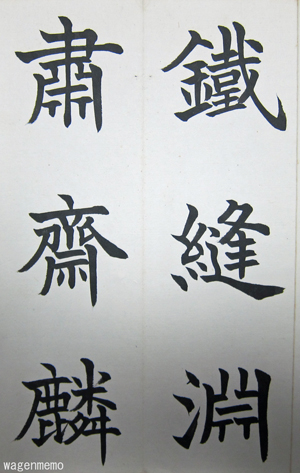 鐵縫淵
肅齋麟
wagenmemo